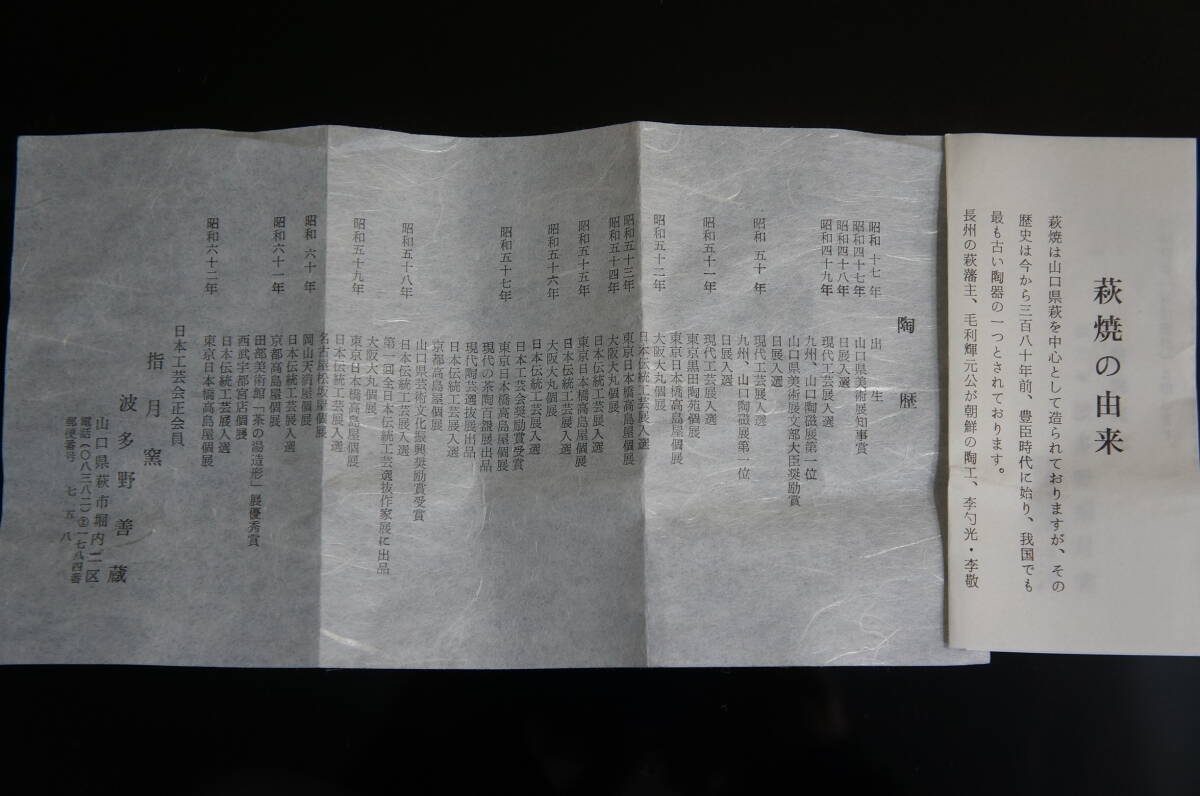 萩焼の由来
萩焼は山口県萩を中心として造られておりますが、その
歴史は今から三百八十年前、豊臣時代に始り、我国でも
最も古い陶器の一つとされております。
長州の萩藩主、毛利輝元公が朝鮮の陶工、李勺光・李敬
陶歴
昭和 十七年 出生
昭和四十七年 山口県美術展知事賞
昭和四十八年 日展入選
昭和四十九年 現代工芸展入選
九州、山口陶磁展第一位
山口県美術展文部大臣奨励賞
日展入選
昭和 五十年 現代工芸展入選
九州、山口陶磁展第一位
日展入選
昭和五十一年 現代工芸展入選
東京黒田陶苑個展
東京日本橋高島屋個展
昭和五十二年 大阪大丸個展
日本伝統工芸展入選
昭和五十三年 東京日本橋高島屋個展
昭和五十四年 大阪大丸個展
日本伝統工芸展入選
昭和五十五年 東京日本橋高島屋個展
日本伝統工芸展入選
昭和五十六年 大阪大丸個展
日本伝統工芸展入選
日本工芸会奨励賞受賞
昭和五十七年 東京日本橋高島屋個展
現代の茶陶百盌展出品
現代陶芸選抜展出品
日本伝統工芸展入選
京都高島屋個展
山口県芸術文化振興奨励賞受賞
昭和五十八年 日本伝統工芸展入選
第一回全日本伝統工芸選抜作家展に出品
大阪大丸個展
昭和五十九年 東京日本橋高島屋個展
日本伝統工芸展入選
名古屋松坂屋個展
昭和 六十年 岡山天満屋個展
日本伝統工芸展入選
昭和六十一年 京都高島屋個展
田部美術館「茶の湯造形」展優秀賞
西武宇都宮店個展
日本伝統工芸展入選
昭和六十二年 東京日本橋高島屋個展
日本工芸会正会員
指月窯
波多野善蔵
山口県萩市堀内二区
電話(〇八三八二)②一七八四番
郵便番号 七五八